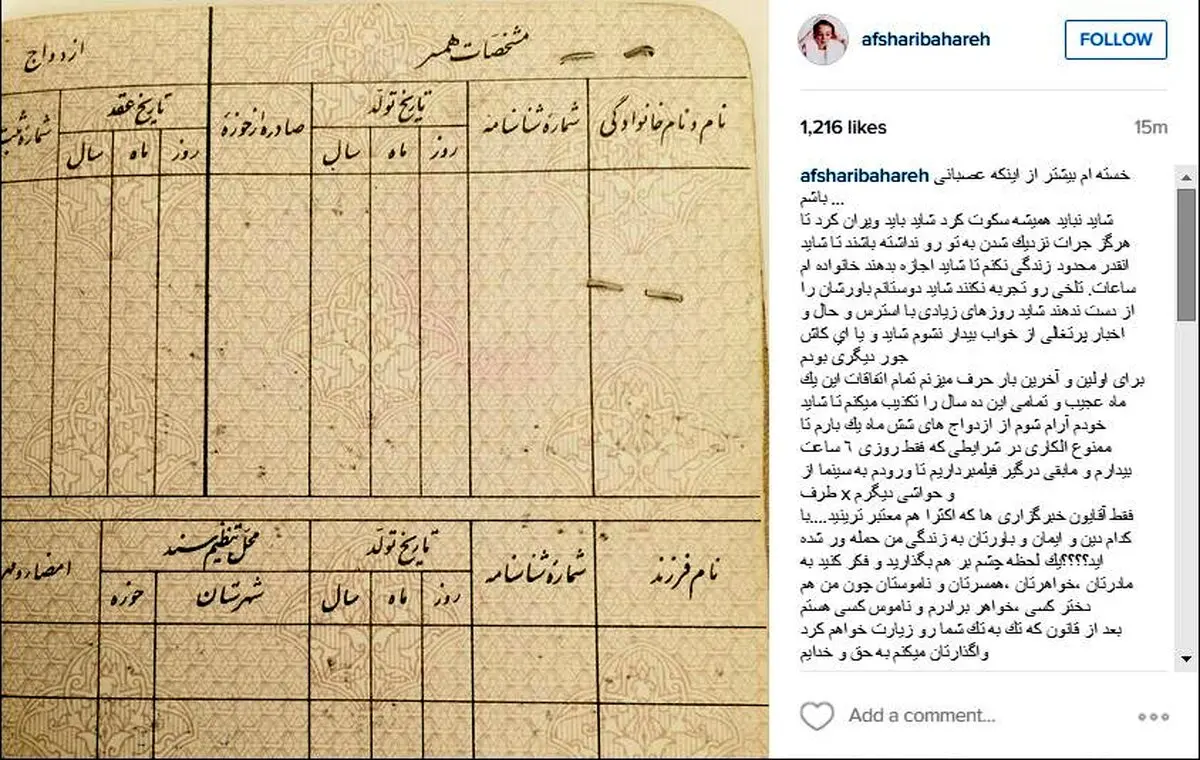 مشخصات همسر
ازدواج
نام و نام خانوادگی
شمارهٔ شناسنامه
تاریخ تولد
روز
ماه
سال
صادره از حوزهٔ
تاریخ عقد
روز
ماه
سال
نام فرزند
شمارهٔ شناسنامه
تاریخ تولد
روز
ماه
سال
محل تنظیم سند
شهرستان
حوزه
afsharibahareh
FOLLOW
1,216 likes
15m
afsharibahareh خسته ام بیشتر از اینکه عصبانی
باشم ...
شاید نباید همیشه سکوت کرد شاید باید ویران کرد تا
هرگز جرات نزديك شدن به تو رو نداشته باشند تا شاید
انقدر محدود زندگی نکنم تا شاید اجازه بدهند خانواده ام
ساعات. تلخی رو تجربه نکنند شاید دوستانم باورشان را
از دست ندهند شاید روزهای زیادی با استرس و حال و
اخبار پرتغالی از خواب بیدار نشوم شاید و یا اي کاش
جور دیگری بودم
برای اولین و آخرین بار حرف میزنم تمام اتفاقات این يك
ماه عجیب و تمامی این ده سال را تکذیب میکنم تا شاید
خودم آرام شوم از ازدواج های شش ماه يك بارم تا
ممنوع الکاری در شرایطی که فقط روزی ٦ ساعت
بیدارم و مابقی درگیر فیلمبرداریم تا ورودم به سینما از
طرف x و حواشی دیگرم
فقط آقایون خبرگزاری ها که اکثرا هم معتبر ترینید....با
کدام دین و ایمان و باورتان به زندگی من حمله ور شده
اید؟؟؟؟يك لحظه چشم بر هم بگذارید و فکر کنید به
مادرتان ،خواهرتان ،همسرتان و ناموستان چون من هم
دختر کسی ،خواهر برادرم و ناموس کسی هستم
بعد از قانون که تك به تك شما رو زیارت خواهم کرد
واگذارتان میکنم به حق و خدایم
Add a comment...